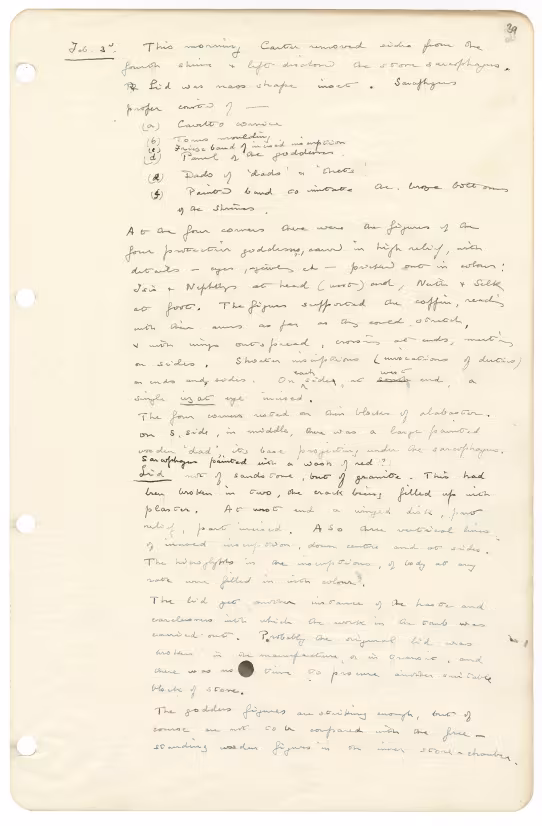 39
Feb. 3rd. This morning Carter removed sides from the
fourth shrine & left disclosed the stone sarcophagus.
Lid was naos shape inset. Sarcophagus
proper consists of —
(a) Cavetto cornice
(b) Torus moulding
(c) Frieze band of incised inscription
(d) Panel of the goddesses.
(e) Dado of 'dads' & 'thets'
(f) Painted band to imitate the bronze bottoms
of the shrines.
At the four corners there were the figures of the
four protective goddesses, carved in high relief, with
details – eyes, etc – picked out in colour:
Isis & Nephthys at head (west) end, Neith & Selk
at foot. The figures supported the coffin, reaching
with their arms as far as they could stretch,
& with wings outspread, crossing at ends, meeting
on sides. Shorter inscriptions (invocations of deities)
on ends and sides. On each side, at west end, a
single uzat eye incised.
The four corners rested on thin blocks of alabaster.
On S. side, in middle, there was a large painted
wooden 'dad' its base projecting under the sarcophagus.
Sarcophagus painted with a wash of red?
Lid not of sandstone, but of granite. This had
been broken in two, the crack being filled up with
plaster. At west end a winged disk, part
relief, part incised. Also three vertical lines
of incised inscription, down centre and at sides.
The hieroglyphs in the inscriptions, of body at any
rate were filled in with colour.
The lid yet another instance of the haste and
carelessness with which the work in the tomb was
carried out. Probably the original lid was
broken in the manufacture, or in transit, and
there was no time to procure another suitable
block of stone.
The goddess figures are striking enough, but of
course are not to be compared with the free-
standing wooden figures in the inner store-chamber.